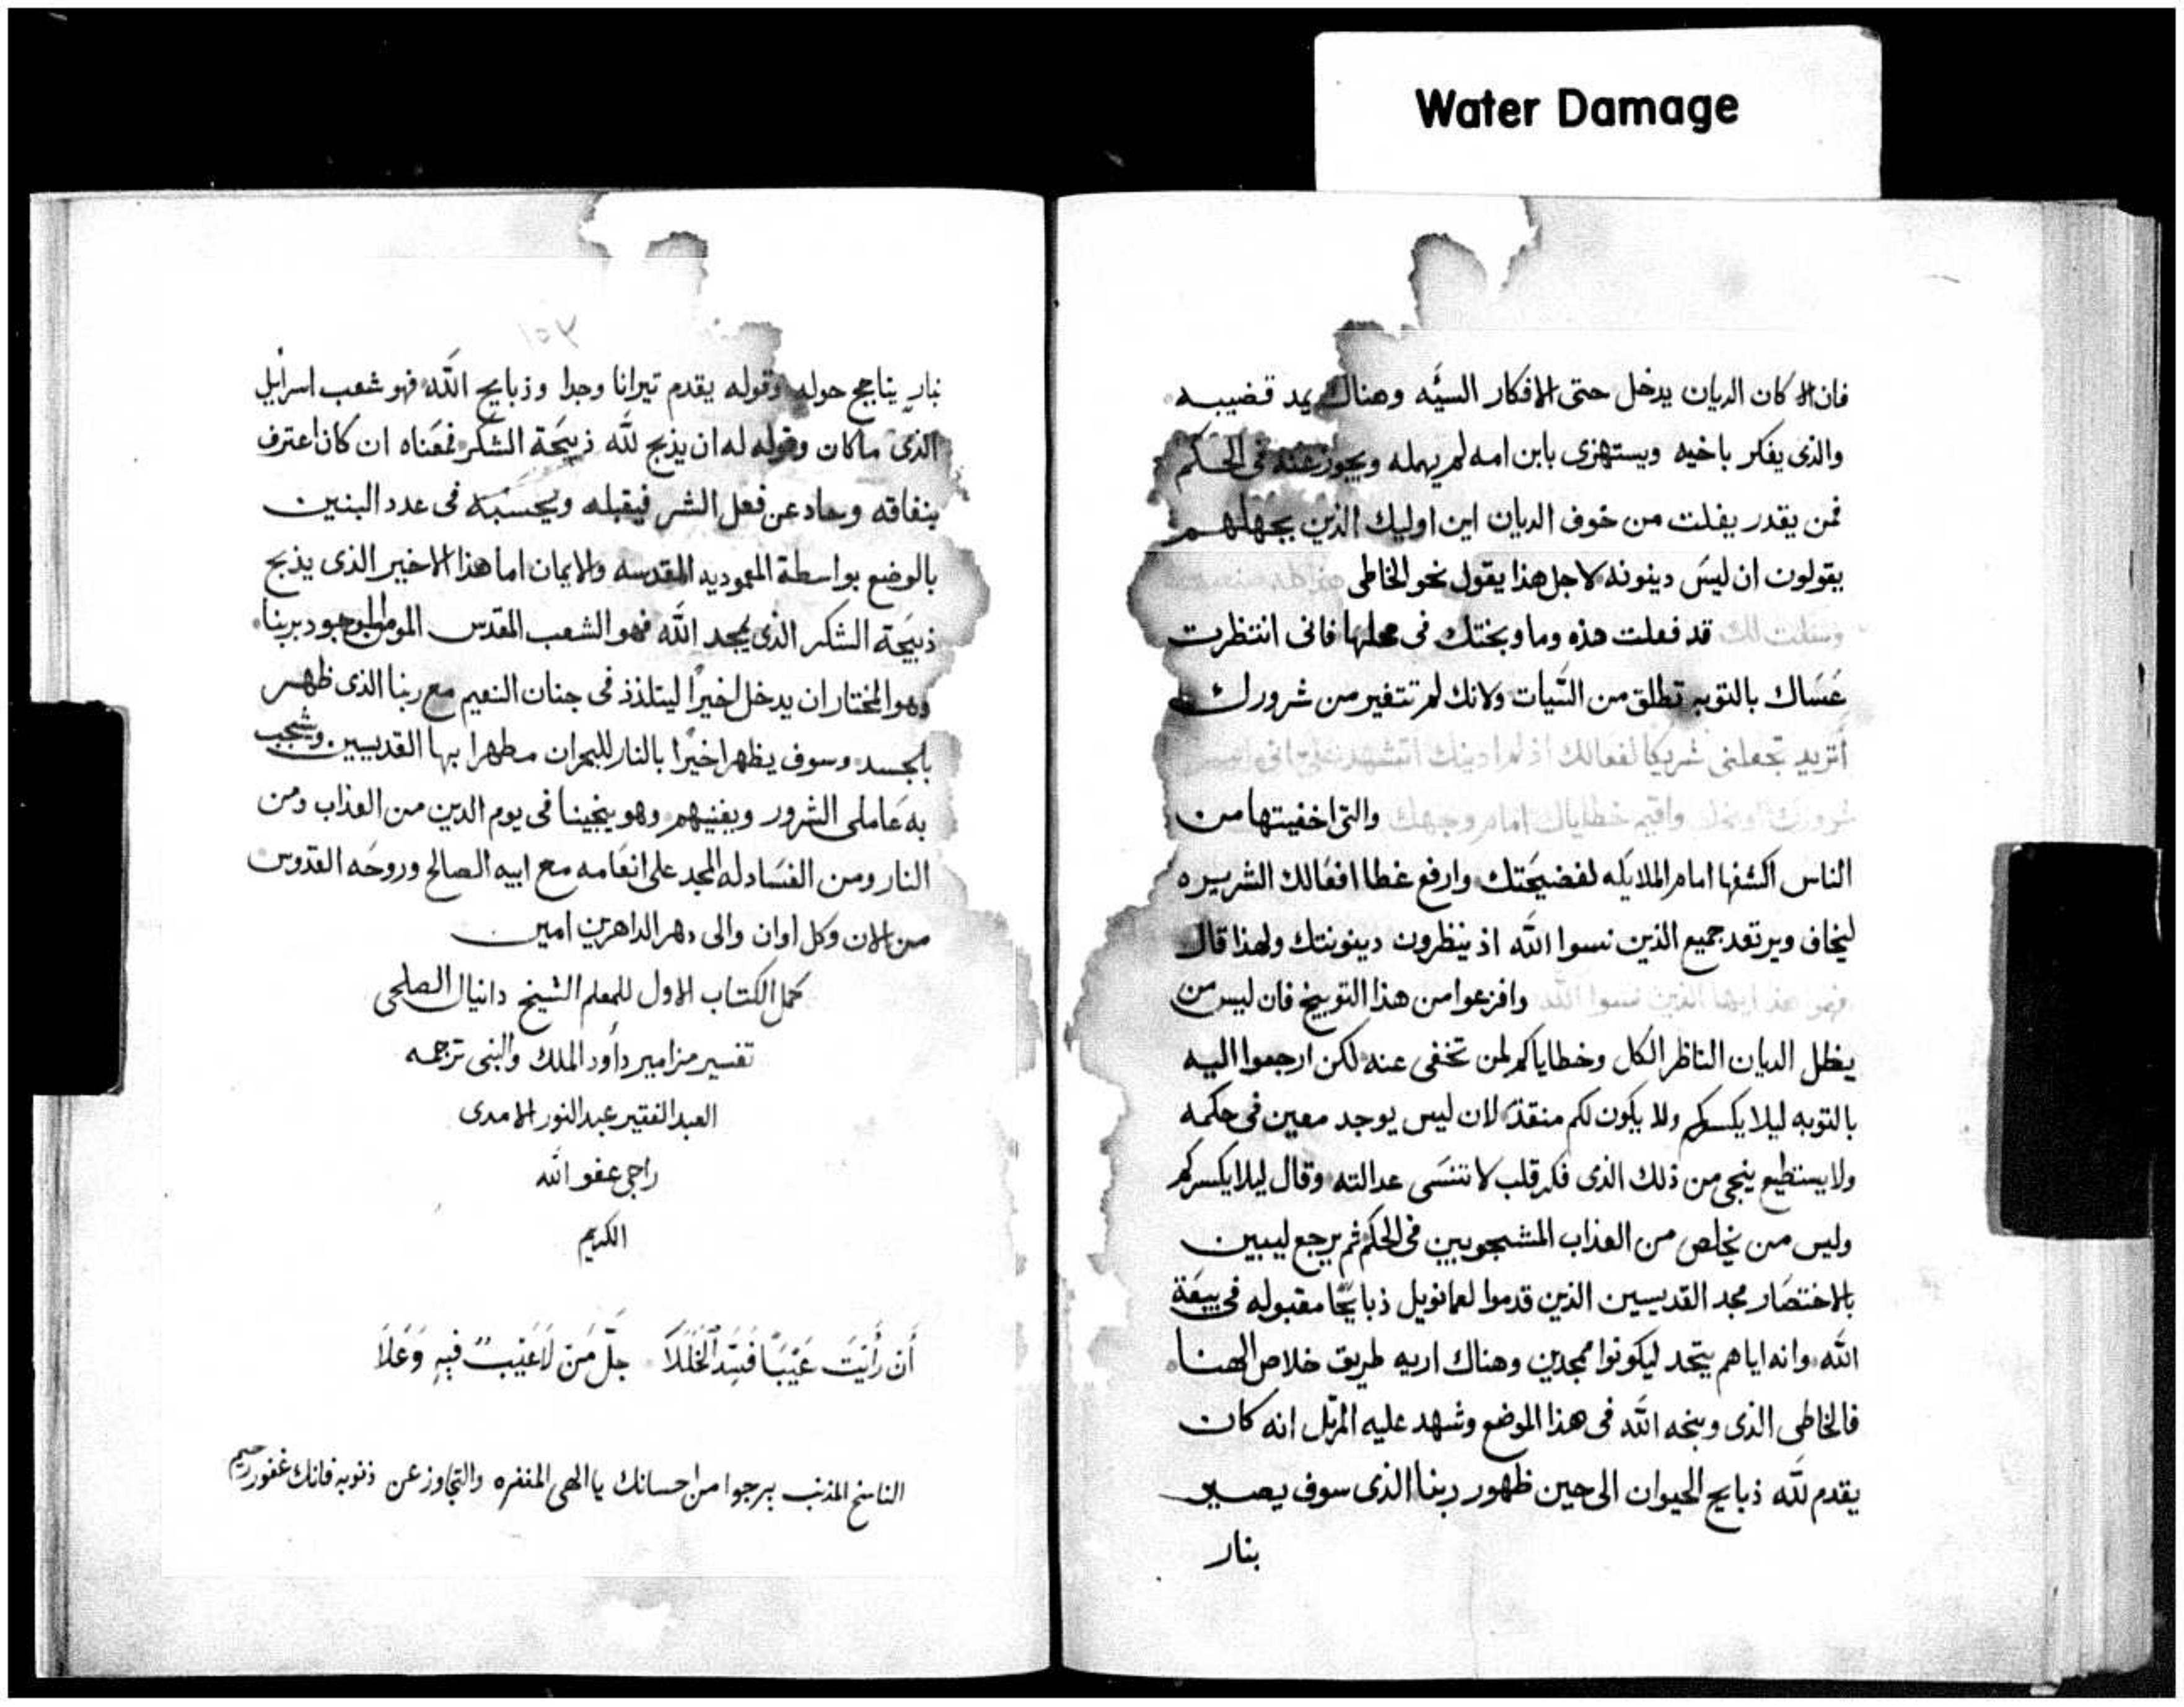 Water Damage
فان الا كان الديان يدخل حتى الافكار السيّه وهناك يمد قضيبه
والذى يفكر باخيه ويستهزى بابن امه لم يهمله ويجوز عنه فى الحكم
فمن يقدر يفلت من خوف الديان اين اوليك الذين بجهلهم
يقولون ان ليس دينونه لاجل هذا يقول نحو الخاطى
قد فعلت هذه وما وبختك فى محلها فانى انتظرت
عساك بالتوبه تطلق من السيات ولانك لم تتغير من شرورك
أتريد تجعلنى شريكا لفعالك اذ لم ادينك
واقيم خطاياك امام وجهك والتى اخفيتها من
الناس اكشفها امام الملايكه لفضيحتك وارفع غطا افعالك الشريره
ليخاف ويرتعد جميع الذين نسوا الله اذ ينظرون دينونتك ولهذا قال
فهموا هذا ايها الذين نسوا الله وافزعوا من هذا التوبيخ فان ليس من
يظل الديان الناظر الكل وخطاياكم لمن تخفى عنه لكن ارجعوا اليه
بالتوبه ليلا يكسركم ولا يكون لكم منقذ لان ليس يوجد معين فى حكمه
ولا يستطيع ينجى من ذلك الذى فكر قلب لا تنسى عدالته وقال ليلا يكسركم
وليس من يخلص من العذاب المشجوبين فى الحكم ثم يرجع ليبين
بالاختصار مجد القديسين الذين قدموا لعمانويل ذبايحًا مقبوله فى بيعة
الله وانه اياهم يتحد ليكونوا ممجدين وهناك اريه طريق خلاص الهنا
فالخاطى الذى وبخه الله فى هذا الموضع وشهد عليه المرتل انه كان
يقدم لله ذبايح الحيوان الى حين ظهور ربنا الذى سوف يصير
بنار
بنار يتاجج حوله وقوله يقدم تيرانا وجدا وذبايح الله فهو شعب اسرايل
الذى ماكان وقوله له ان يذبح لله ذبيحة الشكر فمعناه ان كان اعترف
بنفاقه وحاد عن فعل الشر فيقبله ويحسبه فى عدد البنين
بالوضع بواسطة المعموديه المقدسه والايمان اما هذا الاخير الذى يذبح
ذبيحة الشكر الذى يمجد الله فهو الشعب المقدس بربنا
وهو المختار ان يدخل اخيرًا ليتلذذ فى جنان النعيم مع ربنا الذى ظهر
بالجسد وسوف يظهر اخيرًا بالنار للبحران مطهرا بها القديسين ويشجب
به عاملى الشرور ويفنيهم وهو ينجينا فى يوم الدين من العذاب ومن
النار ومن الفساد له المجد على انعامه مع ابيه الصالح وروحه القدوس
من الان وكل اوان والى دهر الداهرين امين
كمل الكتاب الاول للمعلم الشيخ دانيال الصلحى
تفسير مزامير داود الملك والنبى ترجمه
العبد الفقير عبد النور الامدى
راجى عفو الله
الكريم
أن رَأَيْتَ عَيْبًا فَسُدَّ الْخَلَلَا جلَّ مَنْ لَاعَيْبٌ فِيهِ وَعَلَا
الناسخ المذنب يرجوا من احسانك يا الهى المغفره والتجاوز عن ذنوبه فانك غفور رحيم